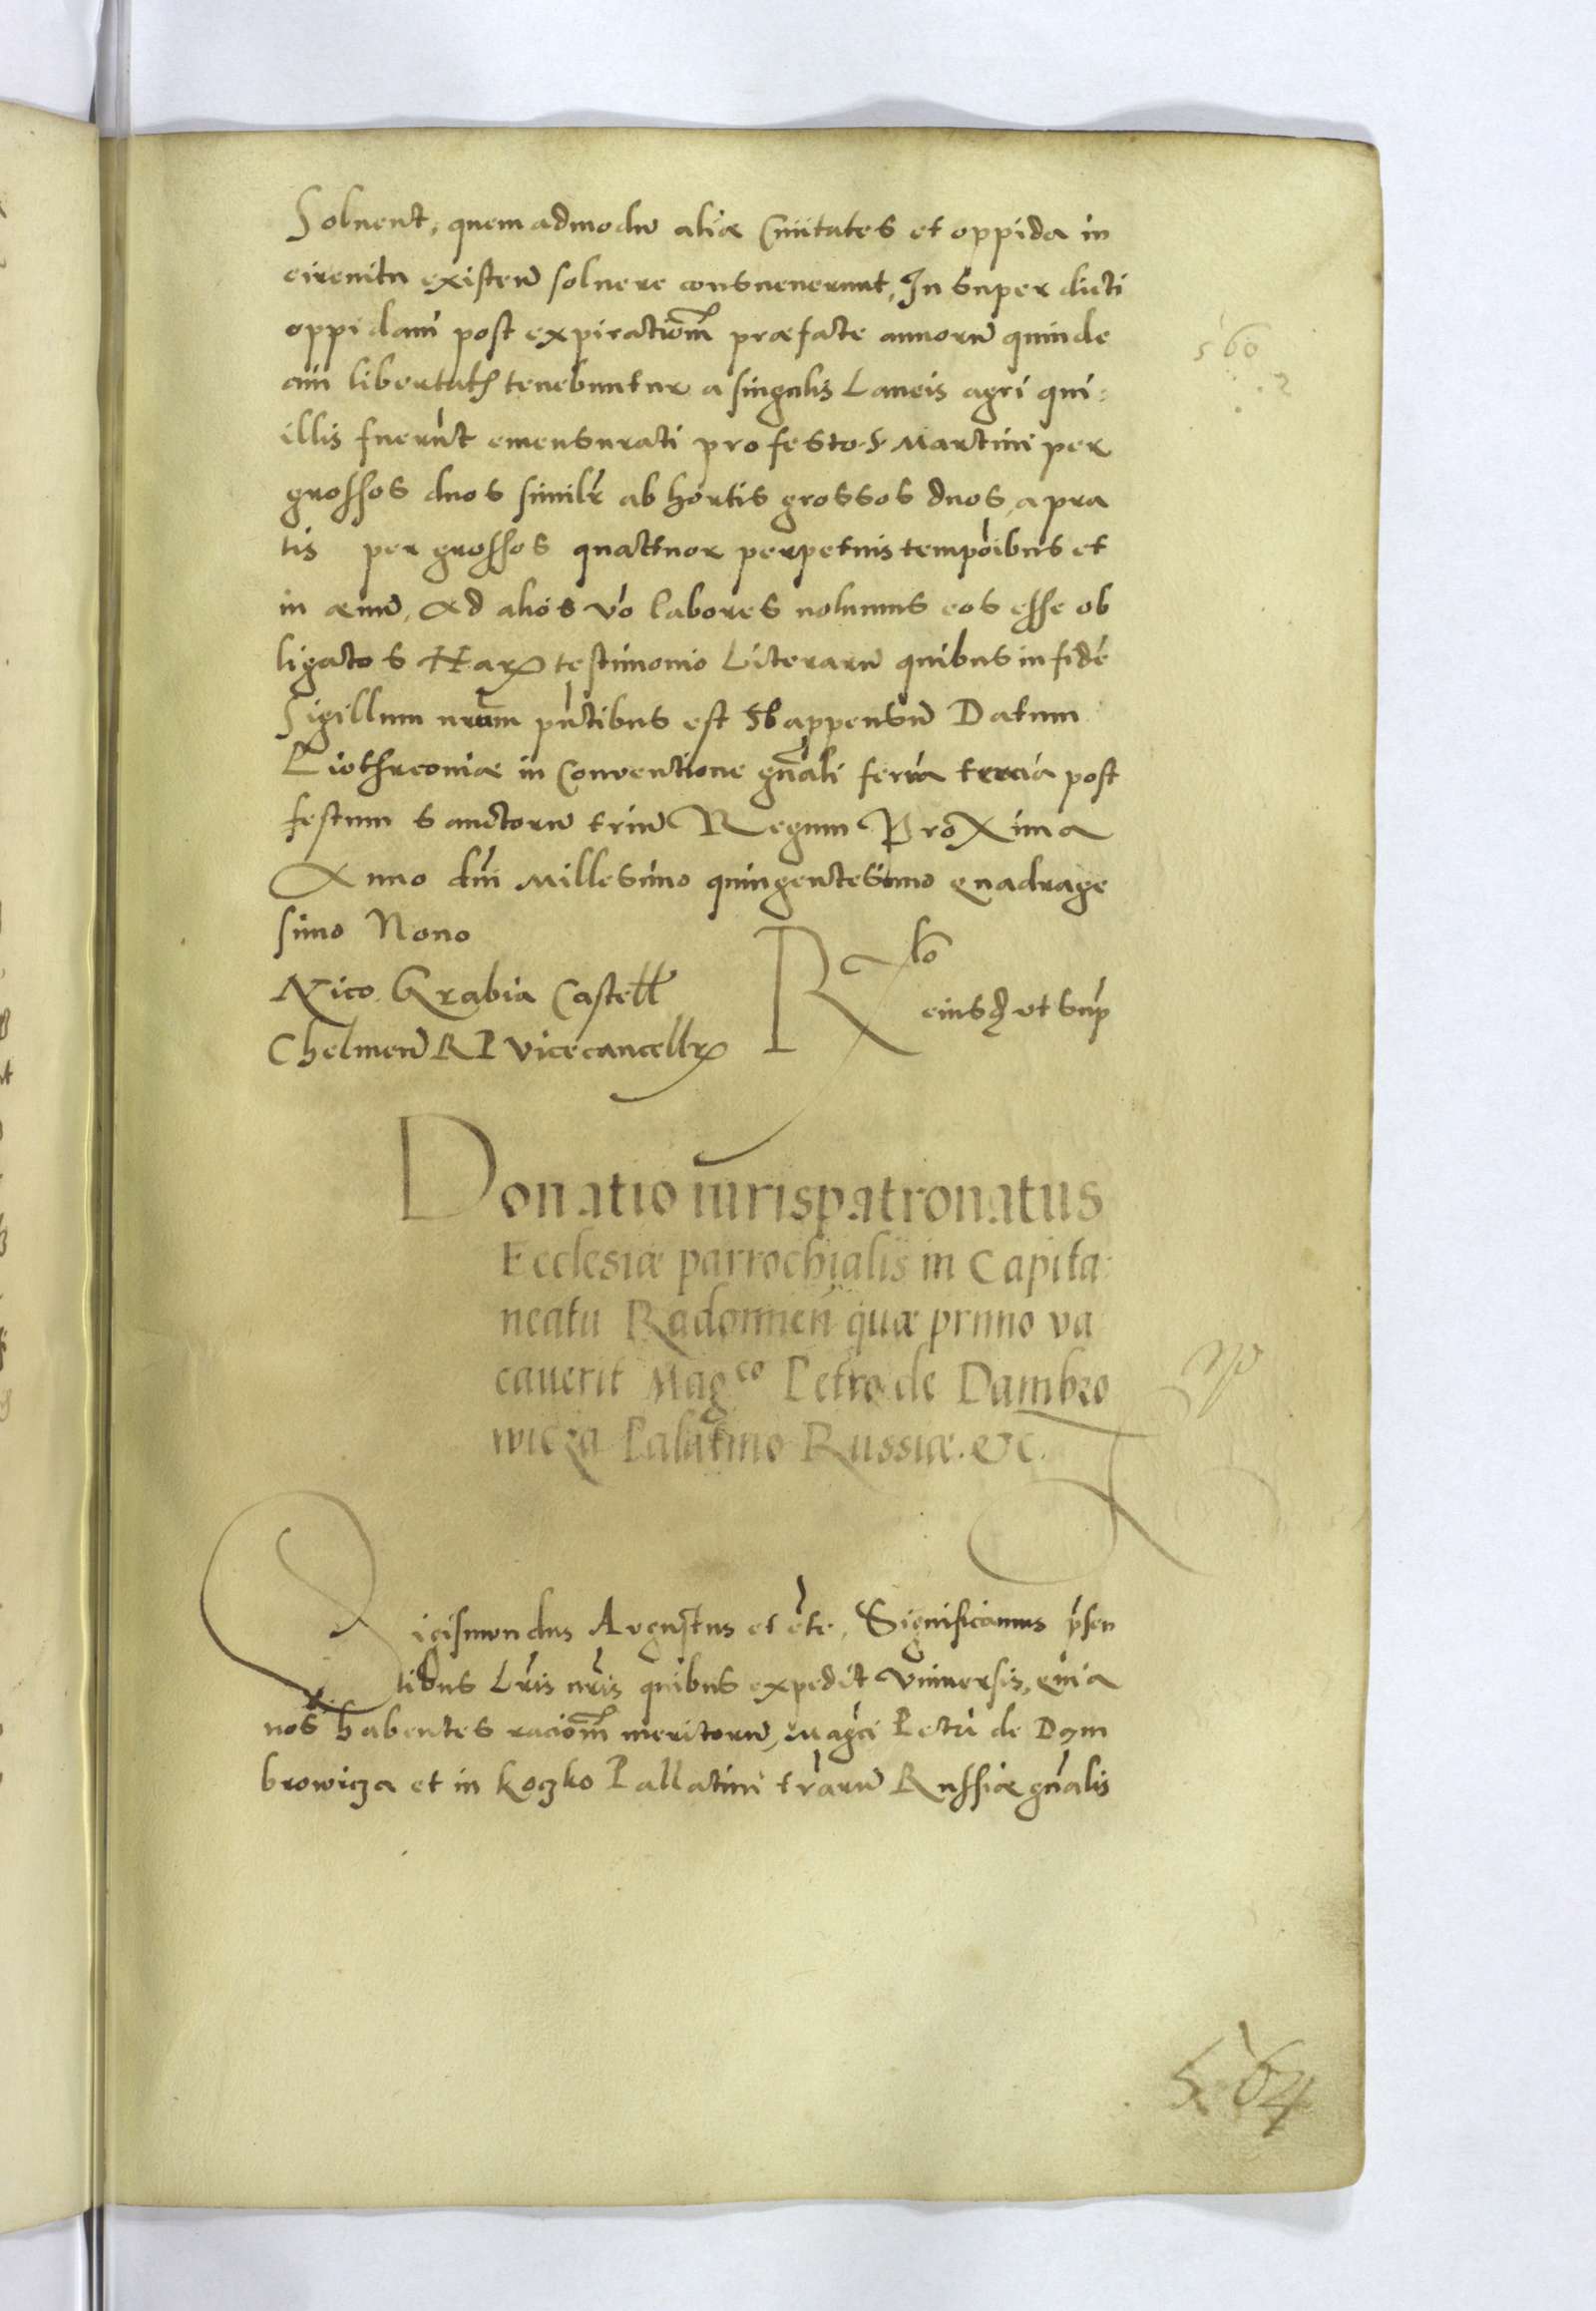 Soluent, quemadmodu aliæ Ciuitates et oppida in
circuitu existen soluere consueuerunt, Insuper dicti
oppidani post expirationem præfate annoru quinde
cim libertatis tenebuntur a singulis Laneis agri qui
illis fuerunt emensurati pro festo S Martini per
grossos duos similr ab hortis grossos duos, a pra
tis per grossos quattuor perpetuis temporibus et
in æuu, Ad alios vo labores nolumus eos esse ob
ligatos Harum testimonio Literaru quibus in fidē
Sigillum nrum pntibus est sbappensu Datum
Piothrconiæ in Conventione gnali feria tercia post
festum sanctoru triu Regum Proxima
Anno dni Millesimo quingentesimo quadrage
simo Nono
Nico Grabia Castell
Chelmen R P Vicecancellr
Rlo
eiusd ut sup
Donatio iurispatronatus
Ecclesiæ parrochialis in Capita
neatu Radomien quæ primo va
cauerit Magco Petro de Dambro
wicza Palatino Russiæ. &c.
Sigismundus Augustus et cete, Significamus prsen
tibus Lris nris quibus expedit vniuersis, quia
nos habentes racionem meritoru, Magci Petri de Dom
browicza et in koczko Pallatini traru Russiæ gnalis
560
564